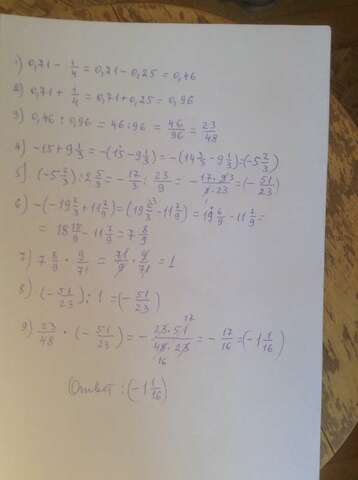 1) 0,71 - 1/4 = 0,71 - 0,25 = 0,46
2) 0,71 + 1/4 = 0,71 + 0,25 = 0,96
3) 0,46 : 0,96 = 46 : 96 = 46/96 = 23/48
4) -15 + 9 1/3 = -(15 - 9 1/3) = -(14 3/3 - 9 1/3) = (-5 2/3)
5) (-5 2/3) : 2 5/9 = - 17/3 : 23/9 = - 17·9 3/3·23 = (- 51/23)
6) -(-19 2/3 + 11 7/9) = (19 2/3 - 11 7/9) = 19 6/9 - 11 7/9 =
= 18 15/9 - 11 7/9 = 7 8/9
7) 7 8/9 · 9/71 = 71/9 · 9/71 = 1
8) (- 51/23) : 1 = (- 51/23)
9) 23/48 · (- 51/23) = - 23·51 17/48·23 16 = - 17/16 = (-1 1/16)
Ответ: (-1 1/16)